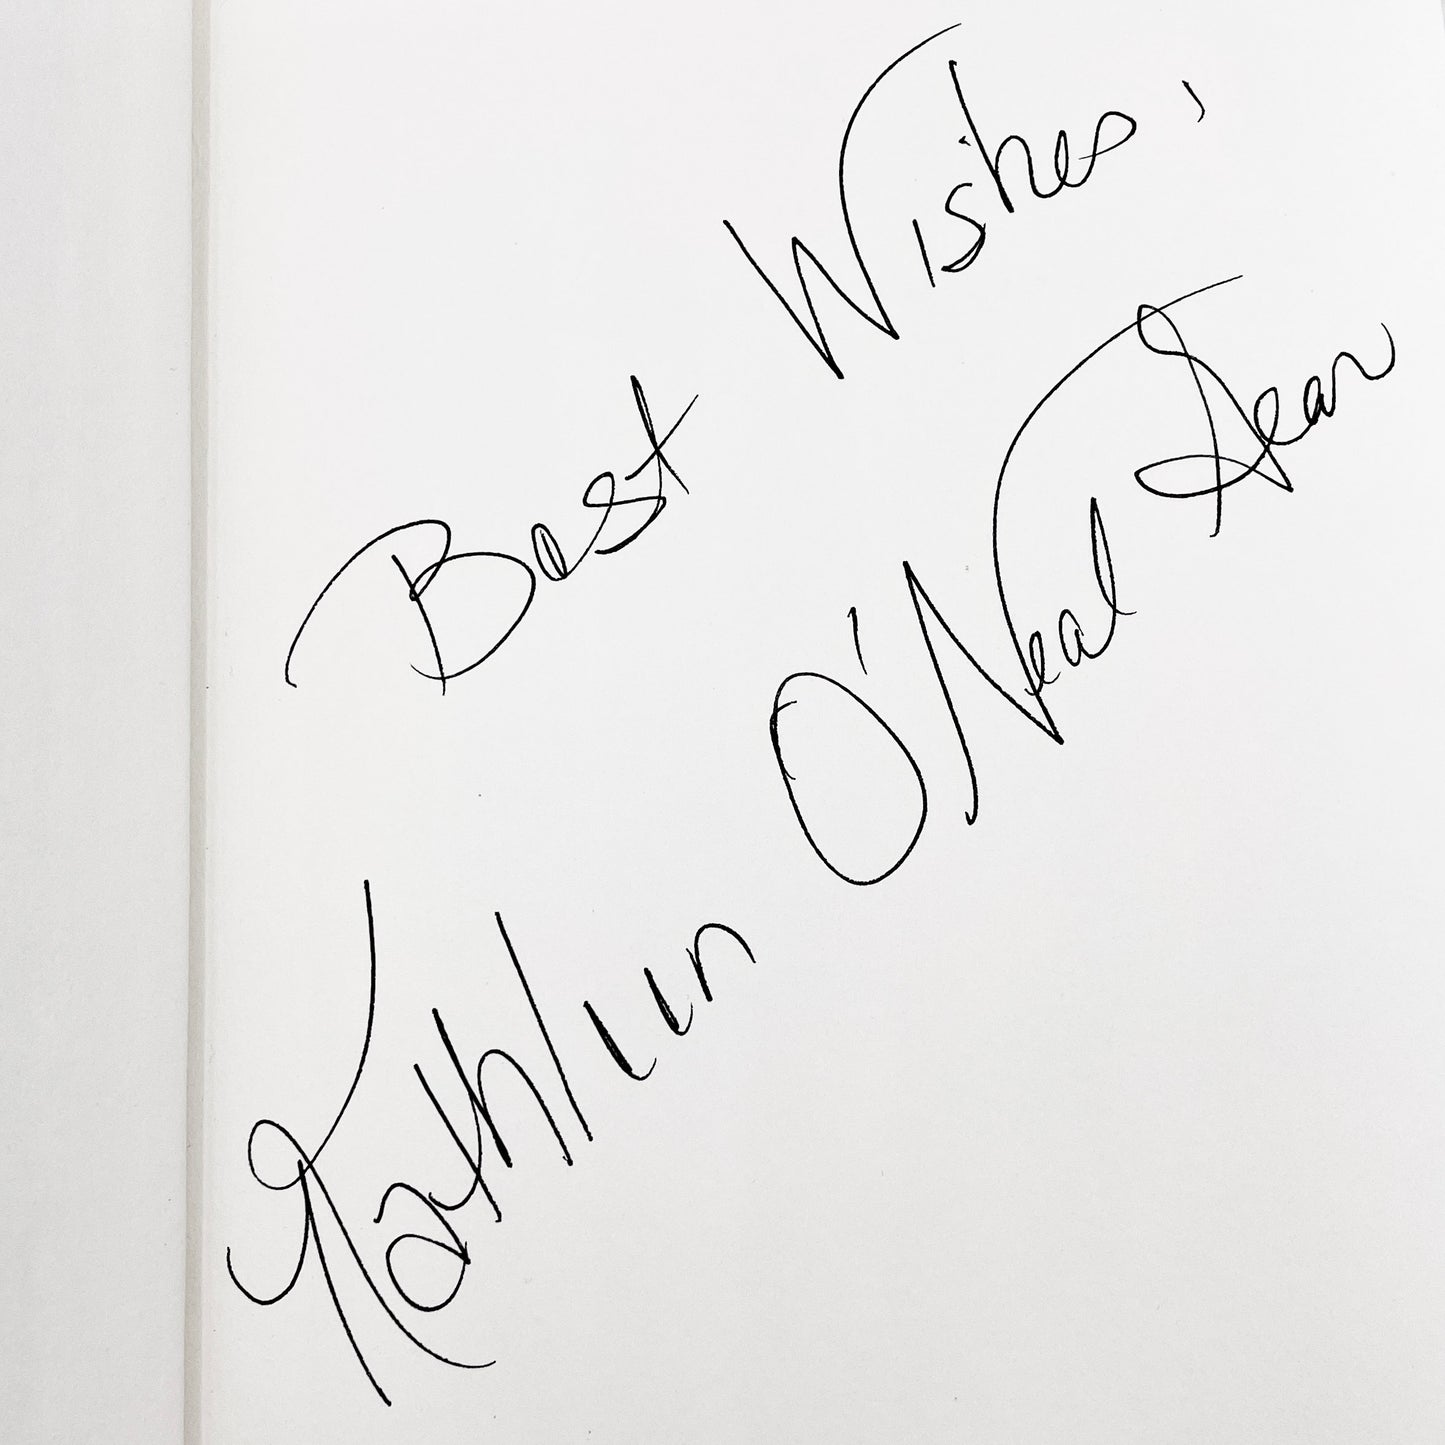 Best Wishes,
Kathleen O'Neal Gear